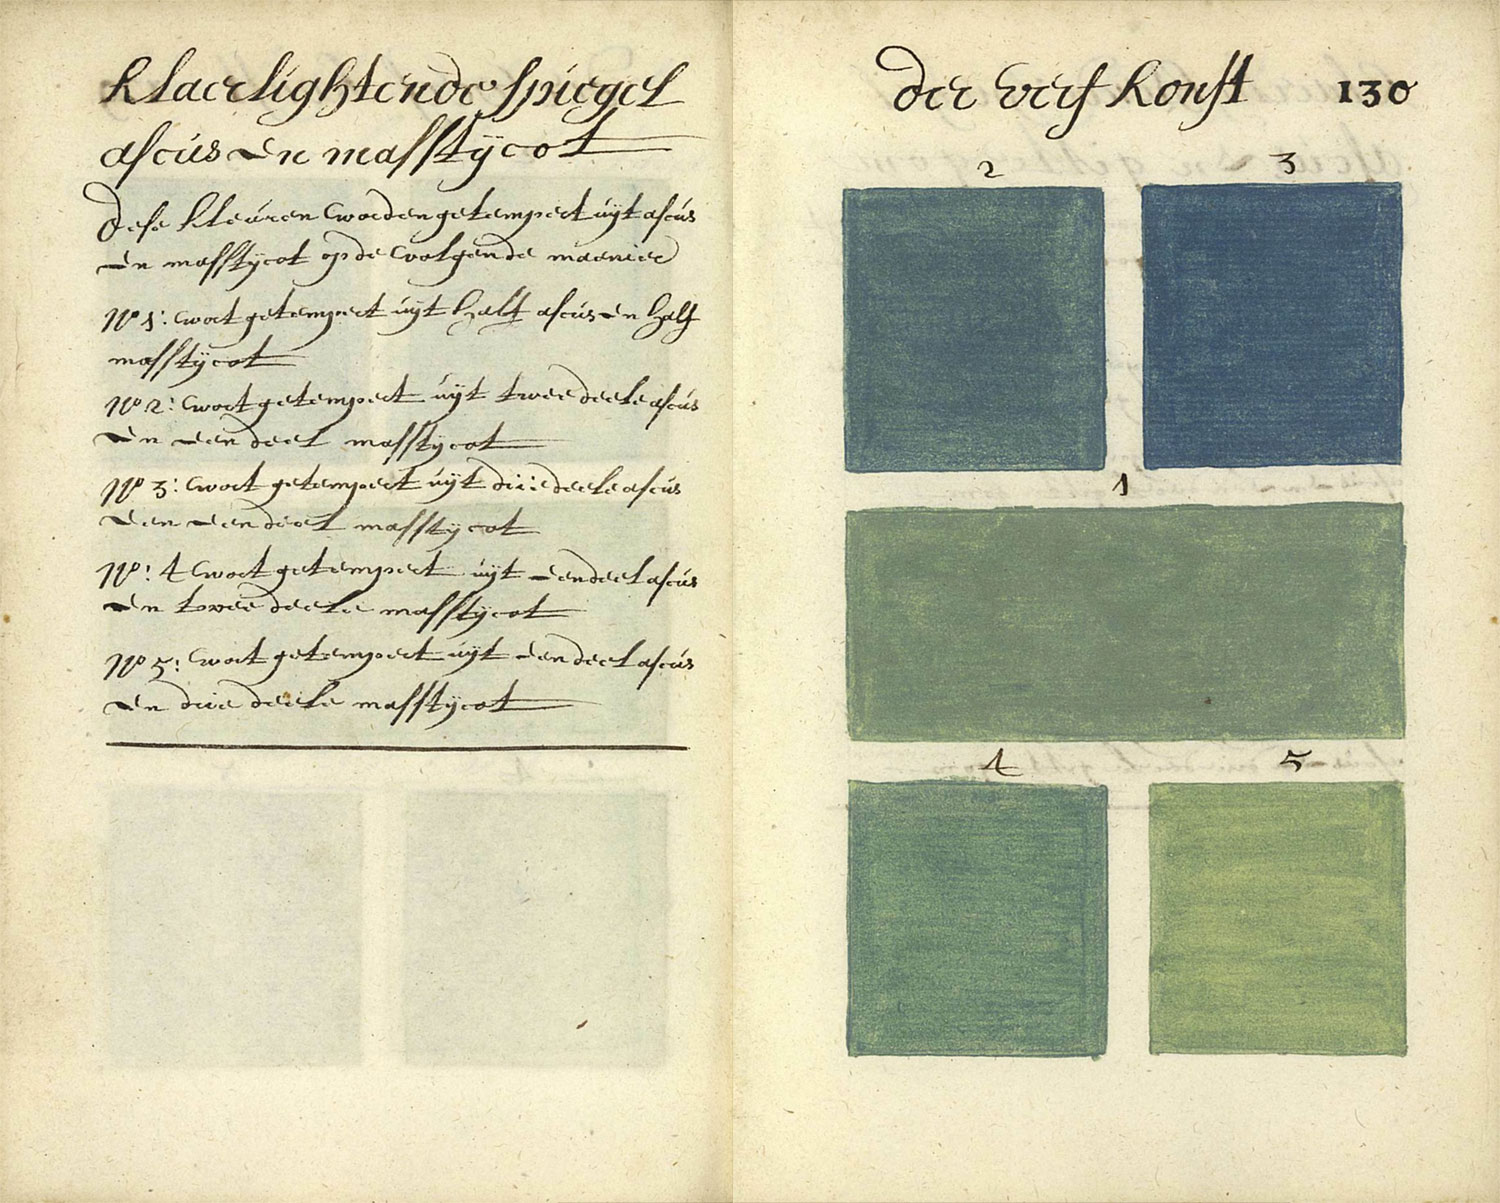 Klaerlightende Spiegel
ascús en masstÿcot
dese kleúren worden getempert úÿt ascús
en masstÿcot op de volgende maenier
No 1: wort getempert úÿt half ascús en half
masstÿcot
No 2: wort getempert úÿt twee deele ascús
en een deel masstÿcot
No 3: wort getempert úÿt drie deele ascús
en een deel masstÿcot
No: 4 wort getempert úÿt een deel ascús
en twee deele masstÿcot
No 5: wort getempert úÿt een deel ascús
en drie deele masstÿcot
der verf konst 130
2 3
1
4 5